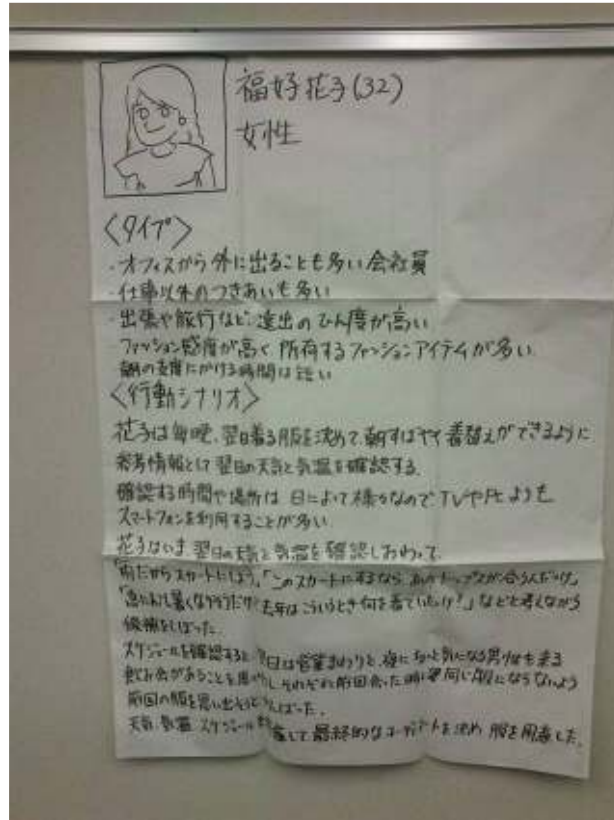 福好花子(32)
女性
<タイプ>
・オフィスから外に出ることも多い会社員
・仕事以外のつきあいも多い
・出張や旅行など、遠出のひん度が高い
ファッション感度が高く所有するファッションアイテムが多い
朝の支度にかける時間は短い
<行動シナリオ>
花子は毎晩、翌日着る服を決めて、朝すばやく着替えができるように
参考情報として翌日の天気と気温を確認する.
確認する時間や場所は日によって様々なのでTVやPCよりも
スマートフォンを利用することが多い
花子はいま翌日の天気と気温を確認しおわって、
「雨だからスカートにしよう」「このスカートにするなら、あのトップスが合うんだっけ」
「急に暑くなりそうだけど去年はこういうとき何を着ていたっけ?」などと考えながら
候補をしぼった.
スケジュールを確認すると、日は営業まわりと、夜にちょっと気になる男性も来る
飲み会があることを しそれぞれ前回会った時と同じ服にならないよう
前回の服を思い出そうと んばった.
天気、気温、スケジュール して最終的なコーディネートを決め服を用意した.